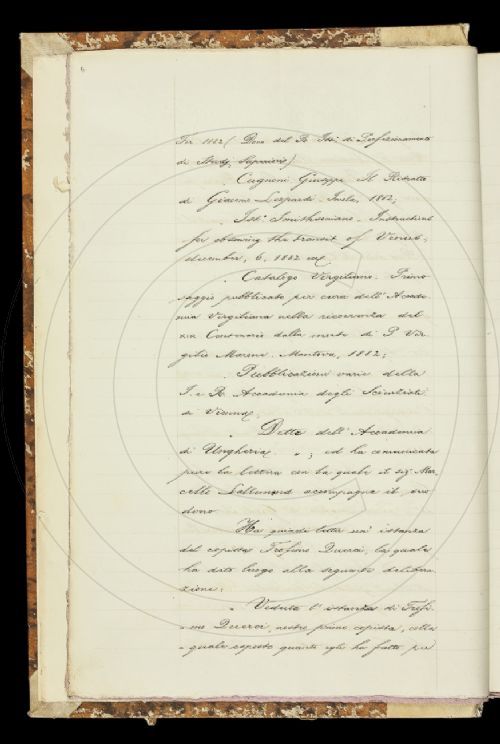 Fir. 1882 (Dono del R. Ist: di Perfezionamento
di Studj Superiori)
Cugnoni Giuseppe Il Ritratto
di Giacomo Leopardi. Imola, 1882;
Ist: Smithsoniano. Instructions
for observing the transit of Venus.
december, 6, 1882
Catalogo Vergiliano. Primo
saggio pubblicato per cura dell'Accade-
mia Vergiliana nella ricorrenza del
XIX Centenario dalla morte di P. Ver
gilio Marone. Mantova, 1882;
Pubblicazioni varie della
I. e R. Accademia degli Scienziati
di Vienna;
Dette dell'Accademia
di Ungheria. ; ed ha comunicata
pure la lettera con la quale il sig. Mar-
cello accompagna il suo
dono
Ha quindi letta un'istanza
del copista Trofimo Querci, la quale
ha dato luogo alla seguente delibera
zione:
"Veduta l'istanza di Trofi-
"mo Querci, nostro primo copista, colla
"quale esposto quanto egli ha fatto per